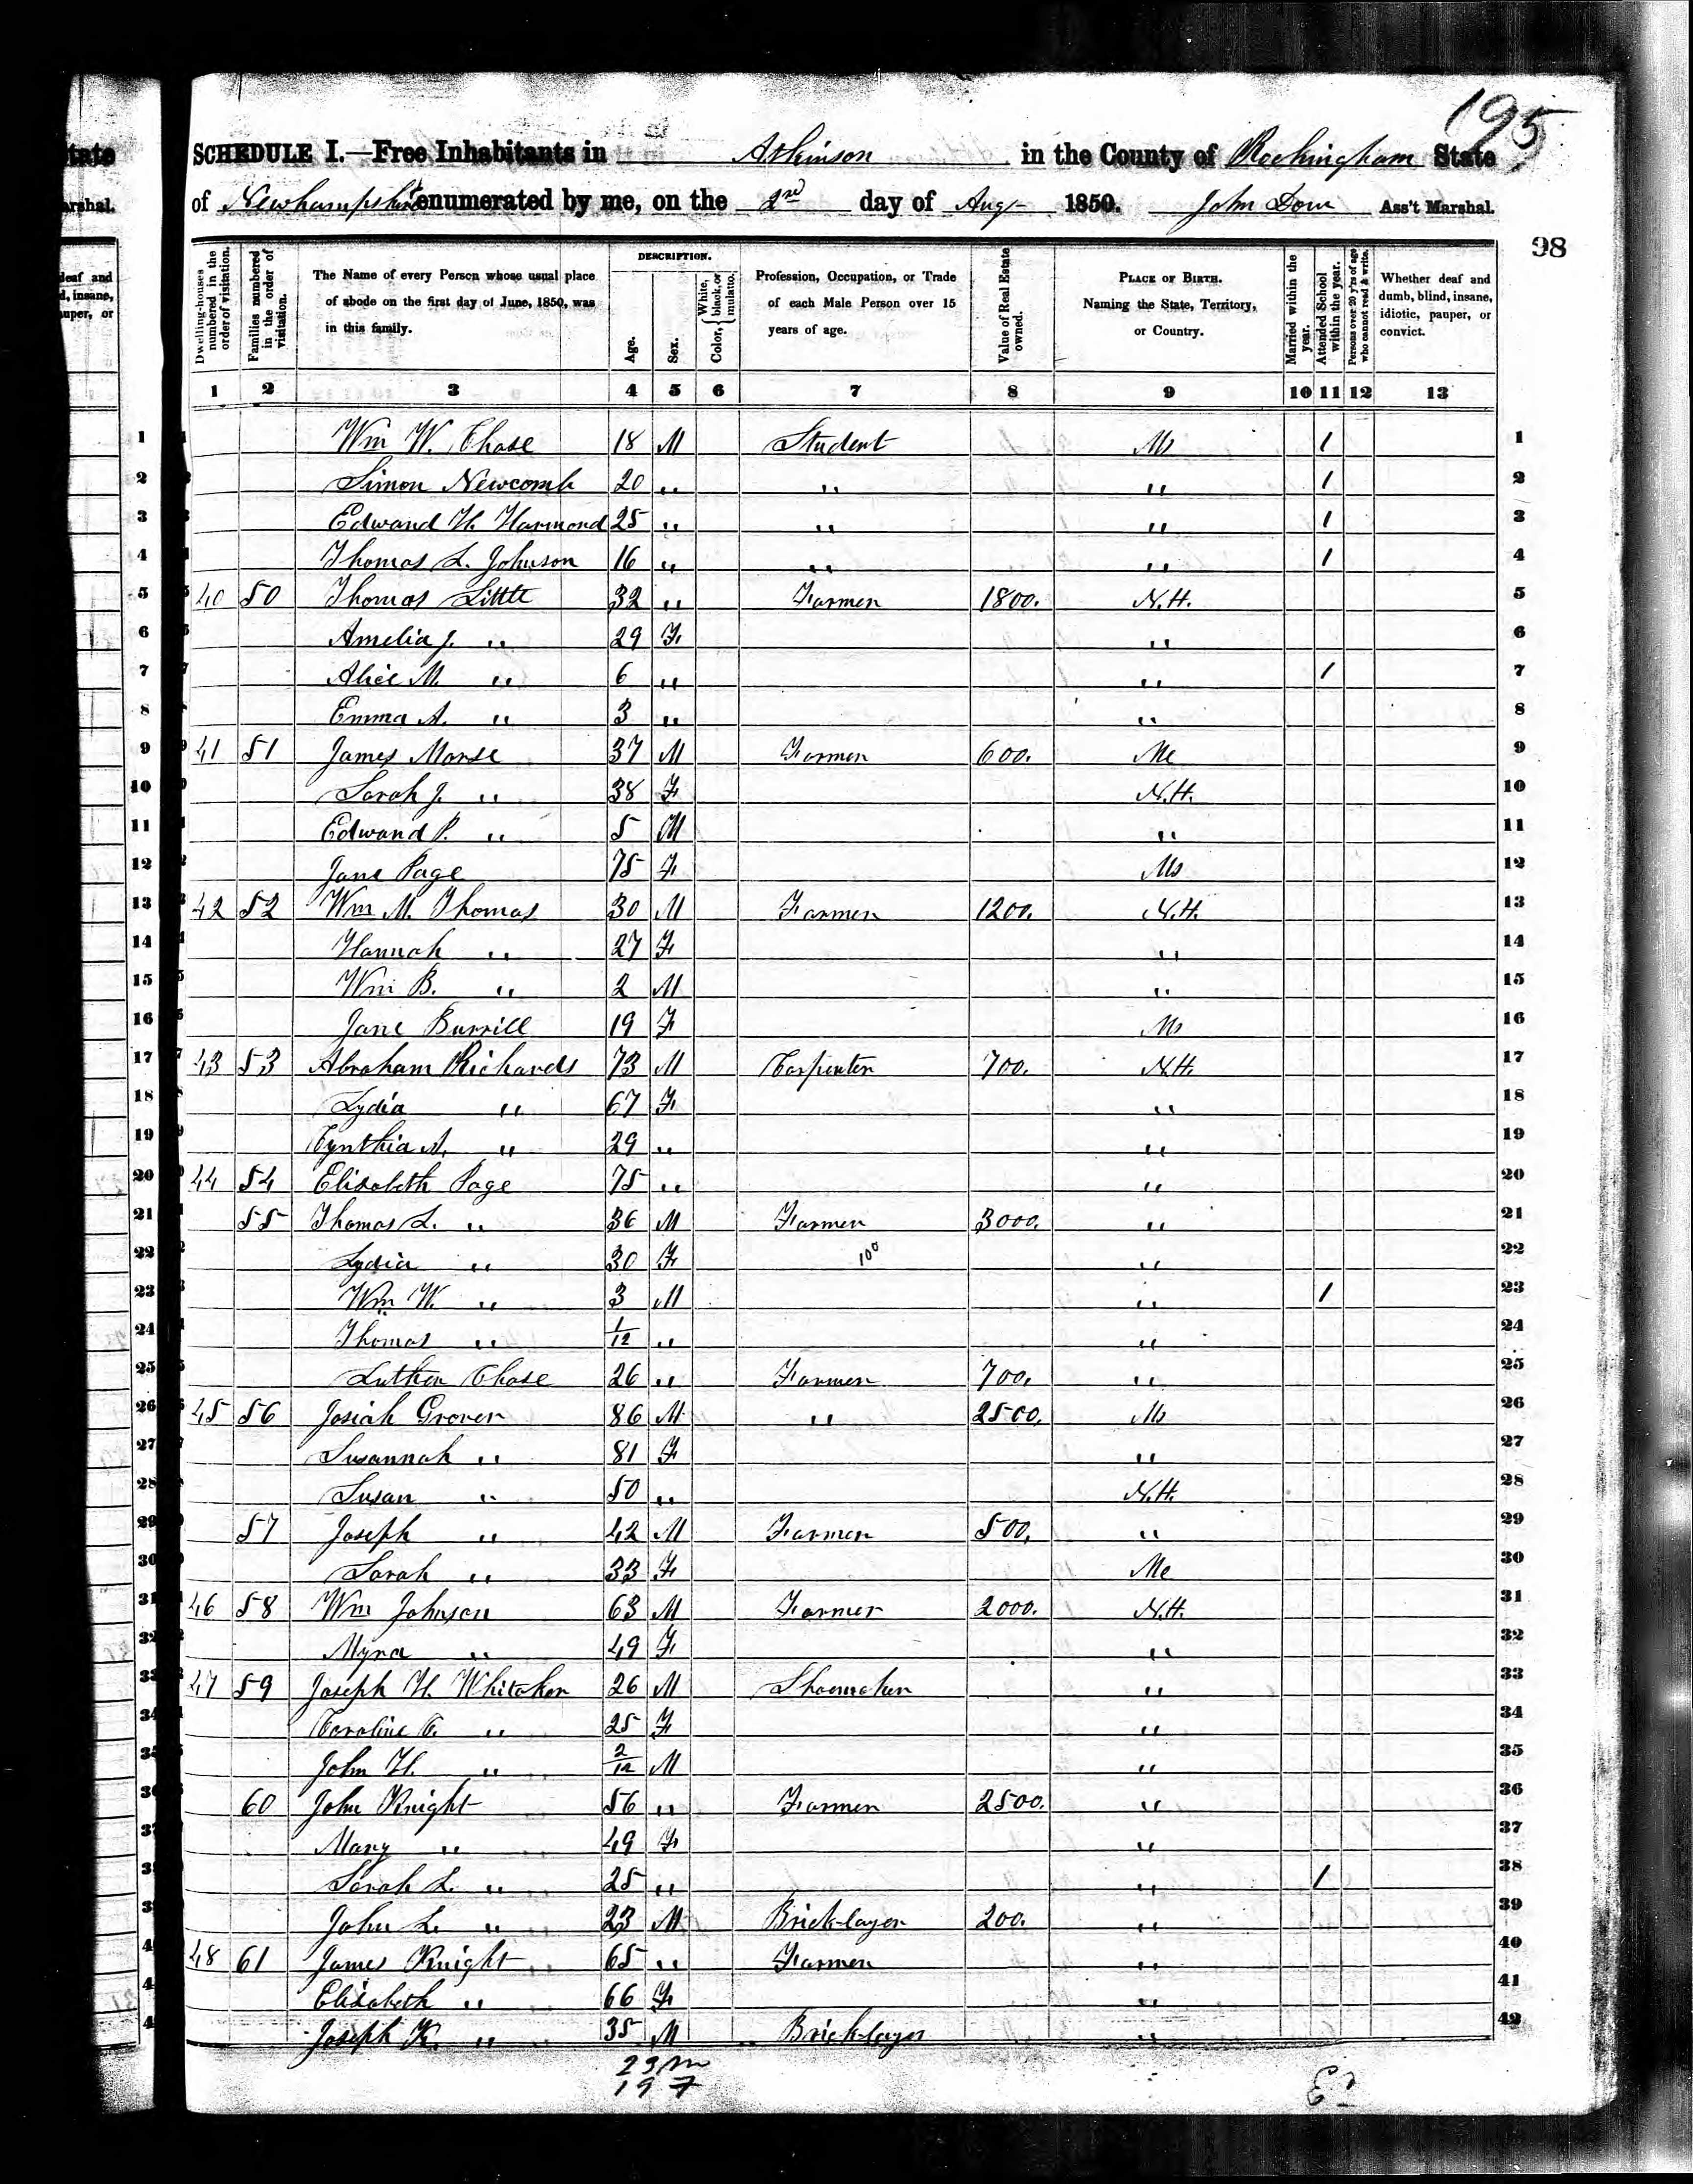 195
SCHEDULE I.—Free Inhabitants in Atkinson in the County of Rockingham State
of Newhampshire enumerated by me, on the 2nd day of Aug 1850. John Dow Ass't Marshal.
98
Dwelling-houses numbered in the order of visitation. Families numbered in the order of visitation. The Name of every Person whose usual place of abode on the first day of June, 1850, was in this family. DESCRIPTION. Age. Sex. Color, White, black, or mulatto. Profession, Occupation, or Trade of each Male Person over 15 years of age. Value of Real Estate owned. PLACE OF BIRTH. Naming the State, Territory, or Country. Married within the year. Attended School within the year. Persons over 20 y'rs of age who cannot read & write. Whether deaf and dumb, blind, insane, idiotic, pauper, or convict.
1 2 3 4 5 6 7 8 9 10 11 12 13
1 Wm W. Chase 18 M Student Ms 1 1
2 Simon Newcomb 20 " " " 1 2
3 Edward H. Harmond 25 " " " 1 3
4 Thomas L. Johnson 16 " " " 1 4
5 40 50 Thomas Little 32 " Farmer 1800. N.H. 5
6 Amelia J. " 29 F " 6
7 Alice M. " 6 " " 1 7
8 Emma A. " 3 " " 8
9 41 51 James Morse 37 M Farmer 600. Me 9
10 Sarah J. " 38 F N.H. 10
11 Edward P. " 5 M " 11
12 Jane Page 75 F Ms 12
13 42 52 Wm M. Thomas 30 M Farmer 1200. N.H. 13
14 Hannah " 27 F " 14
15 Wm B. " 2 M " 15
16 Jane Burrill 19 F Ms 16
17 43 53 Abraham Richards 73 M Carpenter 700. N.H. 17
18 Lydia " 67 F " 18
19 Cynthia A. " 29 " " 19
20 44 54 Elisabeth Page 75 " " 20
21 55 Thomas L. " 36 M Farmer 3000. " 21
22 Lydia " 30 F 100 " 22
23 Wm W. " 3 M " 1 23
24 Thomas " 1/12 " " 24
25 Luther Chase 26 " Farmer 700. " 25
26 45 56 Josiah Grover 86 M " 2500. Ms 26
27 Susannah " 81 F " 27
28 Susan " 50 " N.H. 28
29 57 Joseph " 42 M Farmer 500. " 29
30 Sarah " 33 F Me 30
31 46 58 Wm Johnson 63 M Farmer 2000. N.H. 31
32 Myra " 49 F " 32
33 47 59 Joseph H. Whitaker 26 M Shoemaker " 33
34 Caroline C. " 25 F " 34
35 John H. " 2/12 M " 35
36 60 John Knight 56 " Farmer 2500. " 36
37 Mary " 49 F " 37
38 Sarah L. " 25 " " 1 38
39 John L. " 23 M Brick-layer 200. " 39
40 48 61 James Knight 65 " Farmer " 40
41 Elisabeth " 66 F " 41
42 Joseph K. " 35 M Brick-layer " 42
23 m
19 F